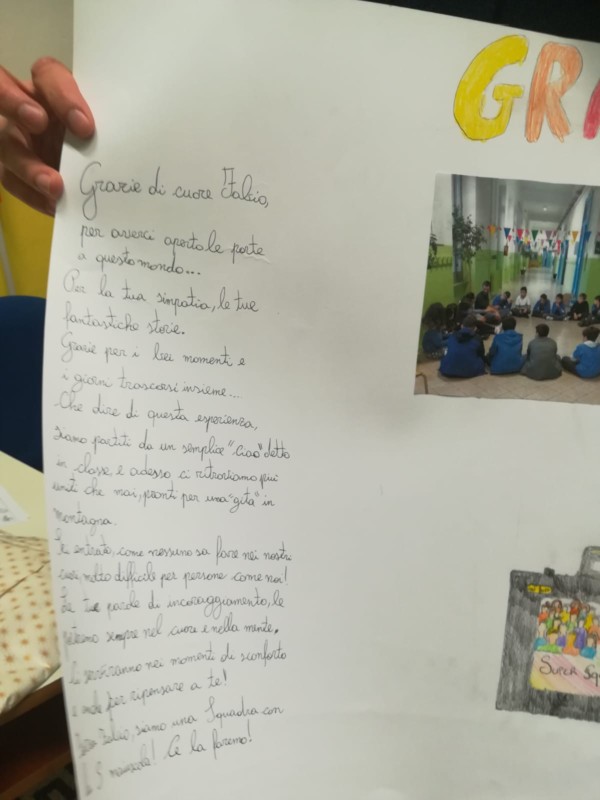 GRA
Grazie di cuore Fabio,
per averci aperto le porte
a questo mondo...
Per la tua simpatia, le tue
fantastiche storie.
Grazie per i bei momenti e
i giorni trascorsi insieme...
Che dire di questa esperienza,
siamo partiti da un semplice "ciao" detto
in classe e adesso ci ritroviamo più
uniti che mai, pronti per una "gita" in
montagna.
Sei entrato, come nessuno sa fare nei nostri
cuori, molto difficile per persone come noi!
Le tue parole di incoraggiamento, le
porteremo sempre nel cuore e nella mente.
Ci serviranno nei momenti di sconforto
e anche per ripensare a te!
Fabio, siamo una Squadra con
la S maiuscola! Ce la faremo!
SUPER SQU